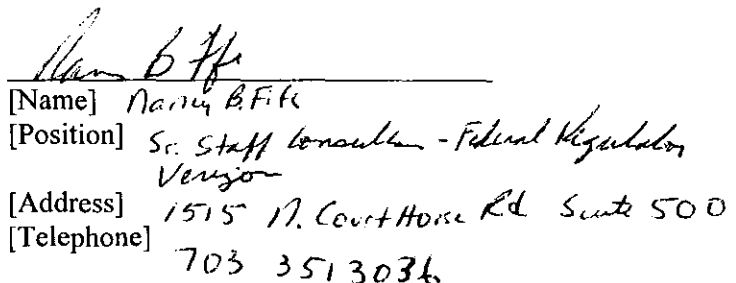 [Name] Nancy B. Fife
[Position] Sr. Staff Consultant - Federal Regulatory
Verizon
[Address] 1515 N. Court House Rd Suite 500
[Telephone]
703 351 3036